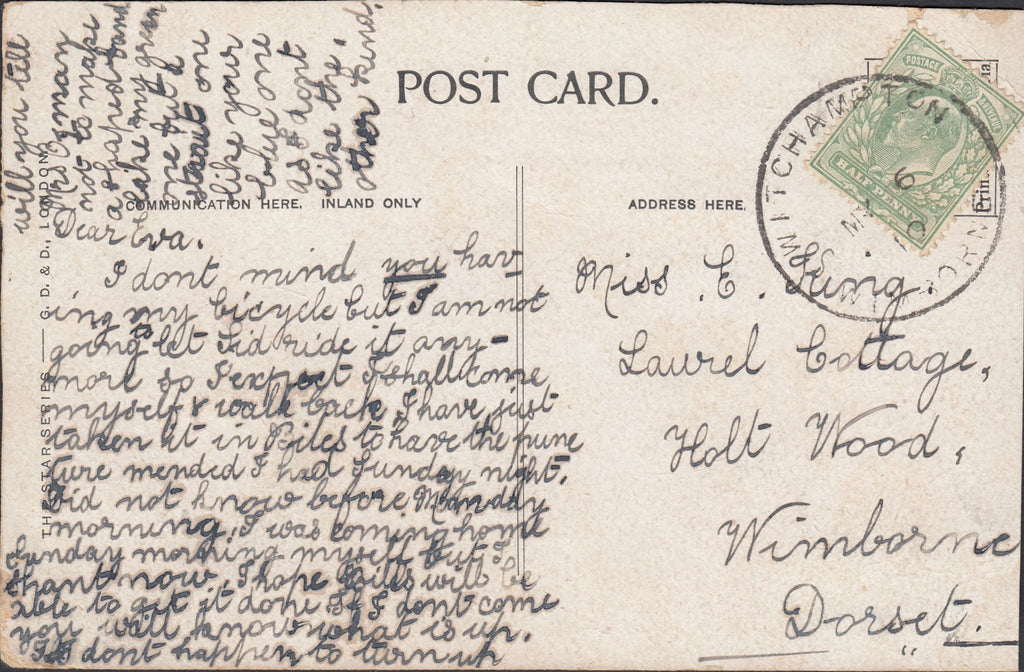 POST CARD.
COMMUNICATION HERE. INLAND ONLY
ADDRESS HERE.
THE STAR SERIES — G. D. & D., LONDON
will you tell
Mrs
not to make
a shaped band
take my green
one but a
strait one
like your
blue one
as I dont
like the
other kind.
Dear Eva.
I dont mind you hav
ing my bicycle but I am not
going to let Sid ride it any-
more so I expect I shall come
myself & walk back I have just
taken it in Biles to have the punc
ture mended I had Sunday night.
Did not know before Monday
morning. I was coming home
Sunday morning myself but I
shant now. I hope Biles will be
able to get it done If I dont come
you will know what is up.
If I dont happen to turn up
Miss E. King.
Laurel Cottage,
Holt Wood,
Wimborne
Dorset.
POSTAGE
HALF PENNY
WITCHAMPTON
WIMBORNE
MY
10
Prin